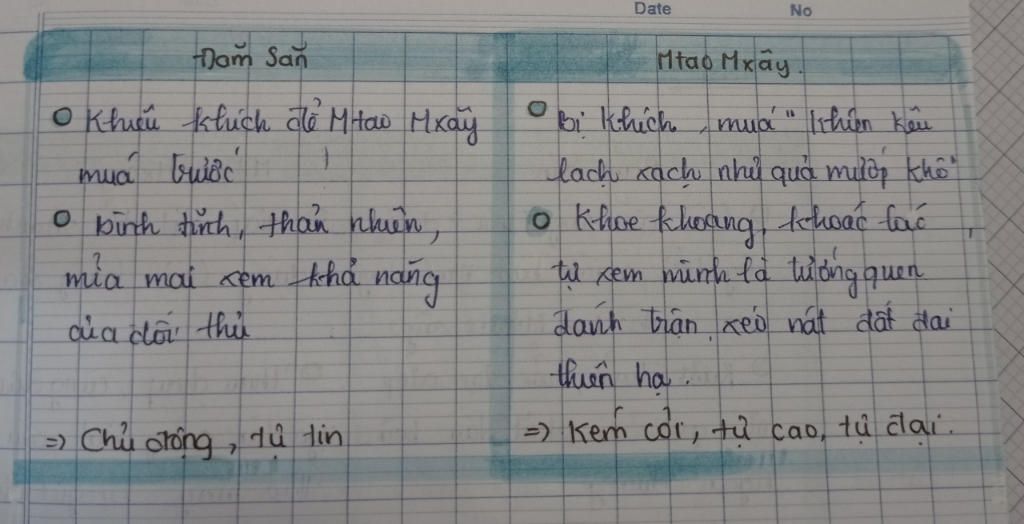 Date No
Đăm Săn
Khiêu khích để Mtao Mxây
múa trước
bình tĩnh, thản nhiên,
mỉa mai xem khả năng
của đối thủ
=> Chủ động, tự tin
Mtao Mxây.
bị khích, múa "khiên kêu
lạch xạch như quả mướp khô"
Khoe khoang, khoác lác,
tự xem mình là tướng quen
đánh trận, xéo nát đất đai
thiên hạ.
=> Kém cỏi, tự cao, tự đại.